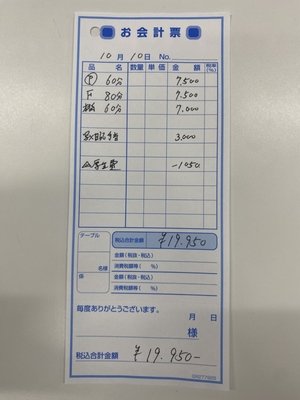 お会計票
10月10日 No.
品名 数量 単価 金額 税率(%)
Ⓟ 60分 7,500
F 80分 7,500
60分 7,000
手当 3,000
厚生費 -1050
テーブル
名様
係
税込合計金額 ¥19,950
金額(税抜・税込)
消費税額等( %)
金額(税抜・税込)
消費税額等( %)
毎度ありがとうございます。
月 日
様
税込合計金額 ¥19,950-